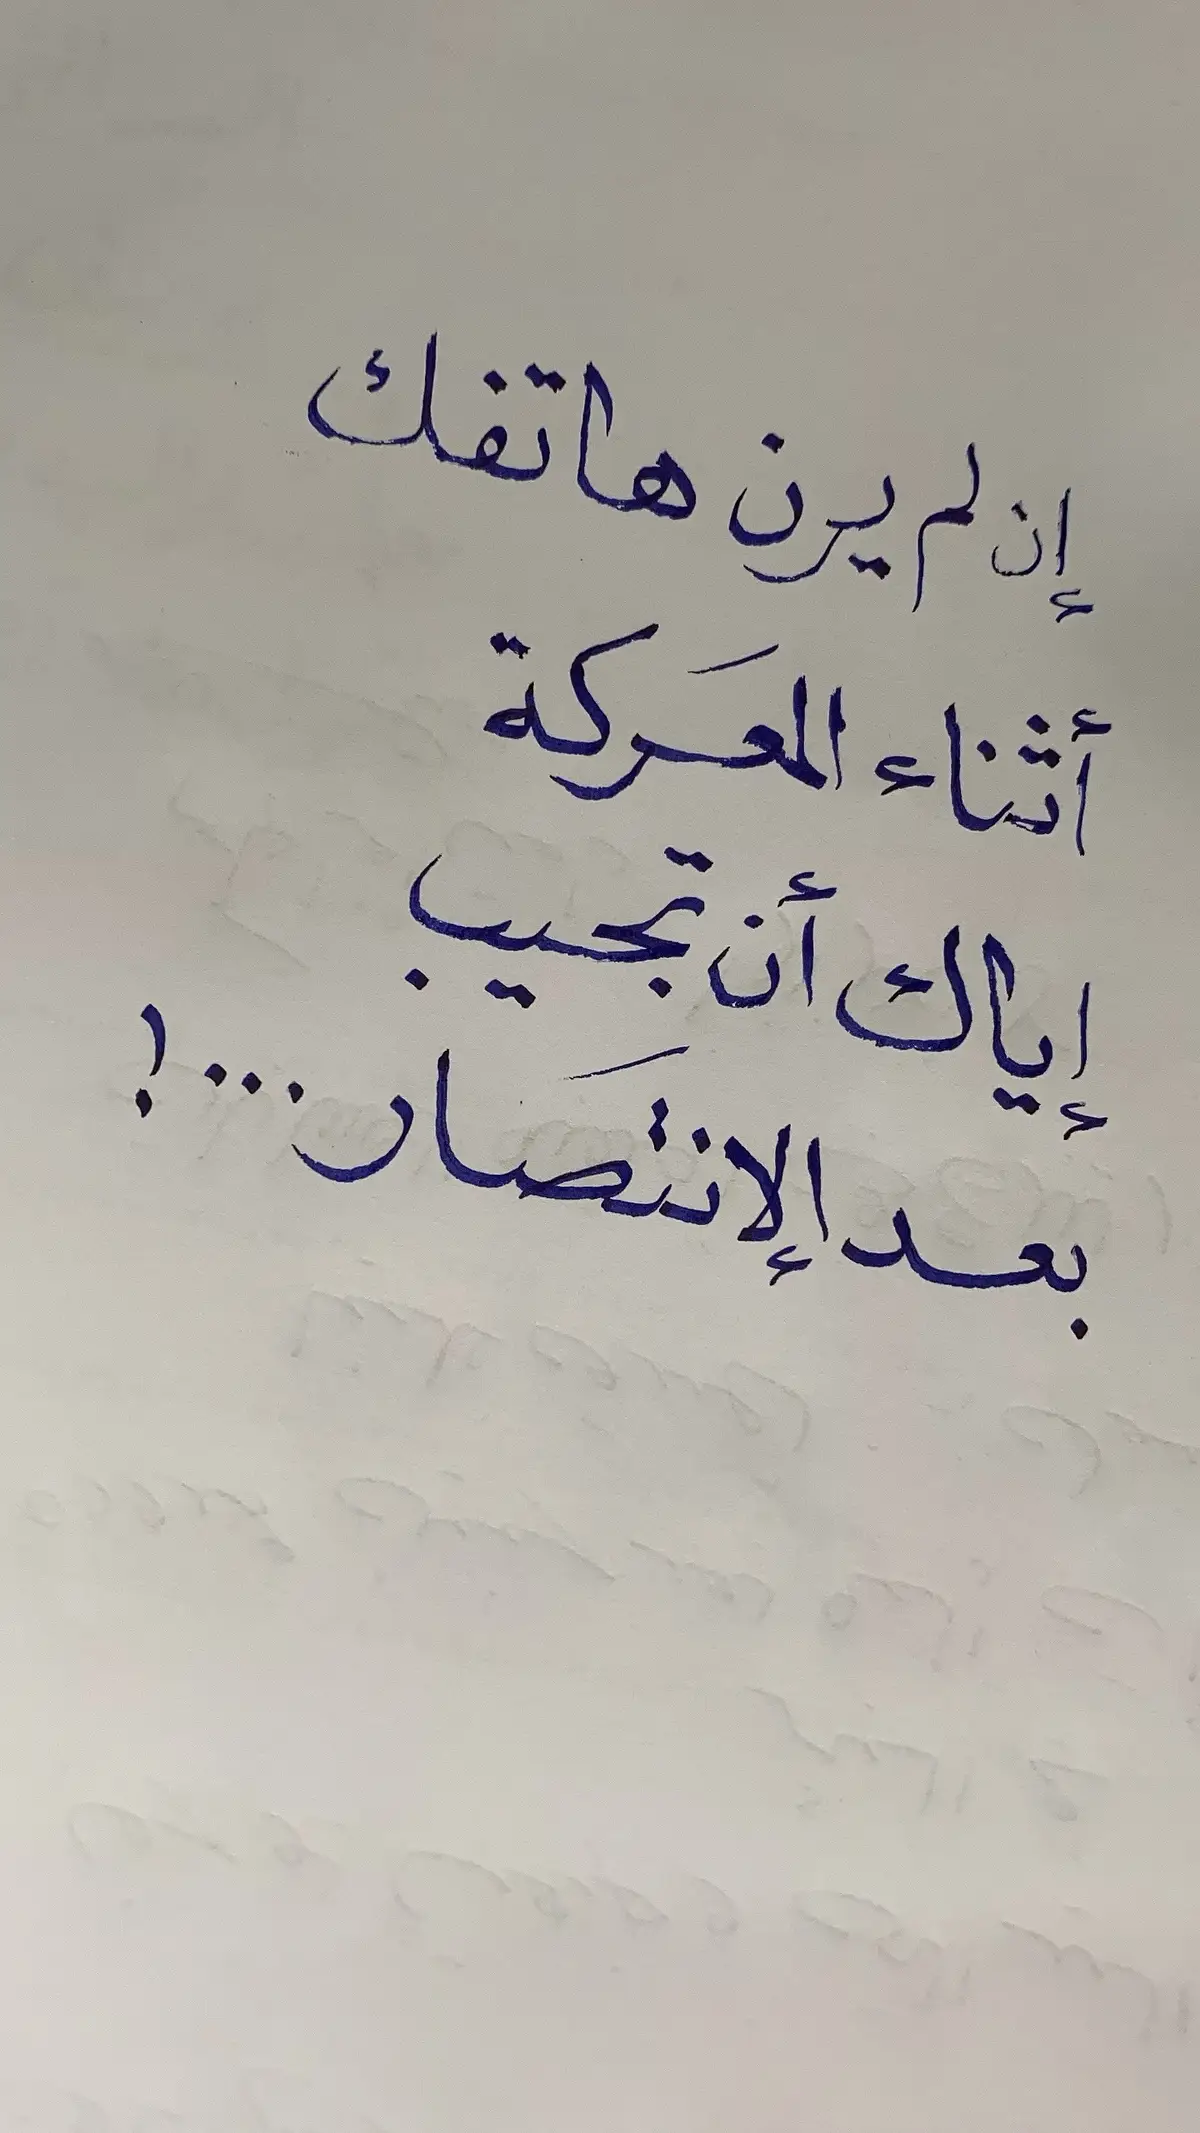 إن لم يرن هاتفك
أثناء المعَركة
إياك أن تجيب
بعد الإنتَصار...!